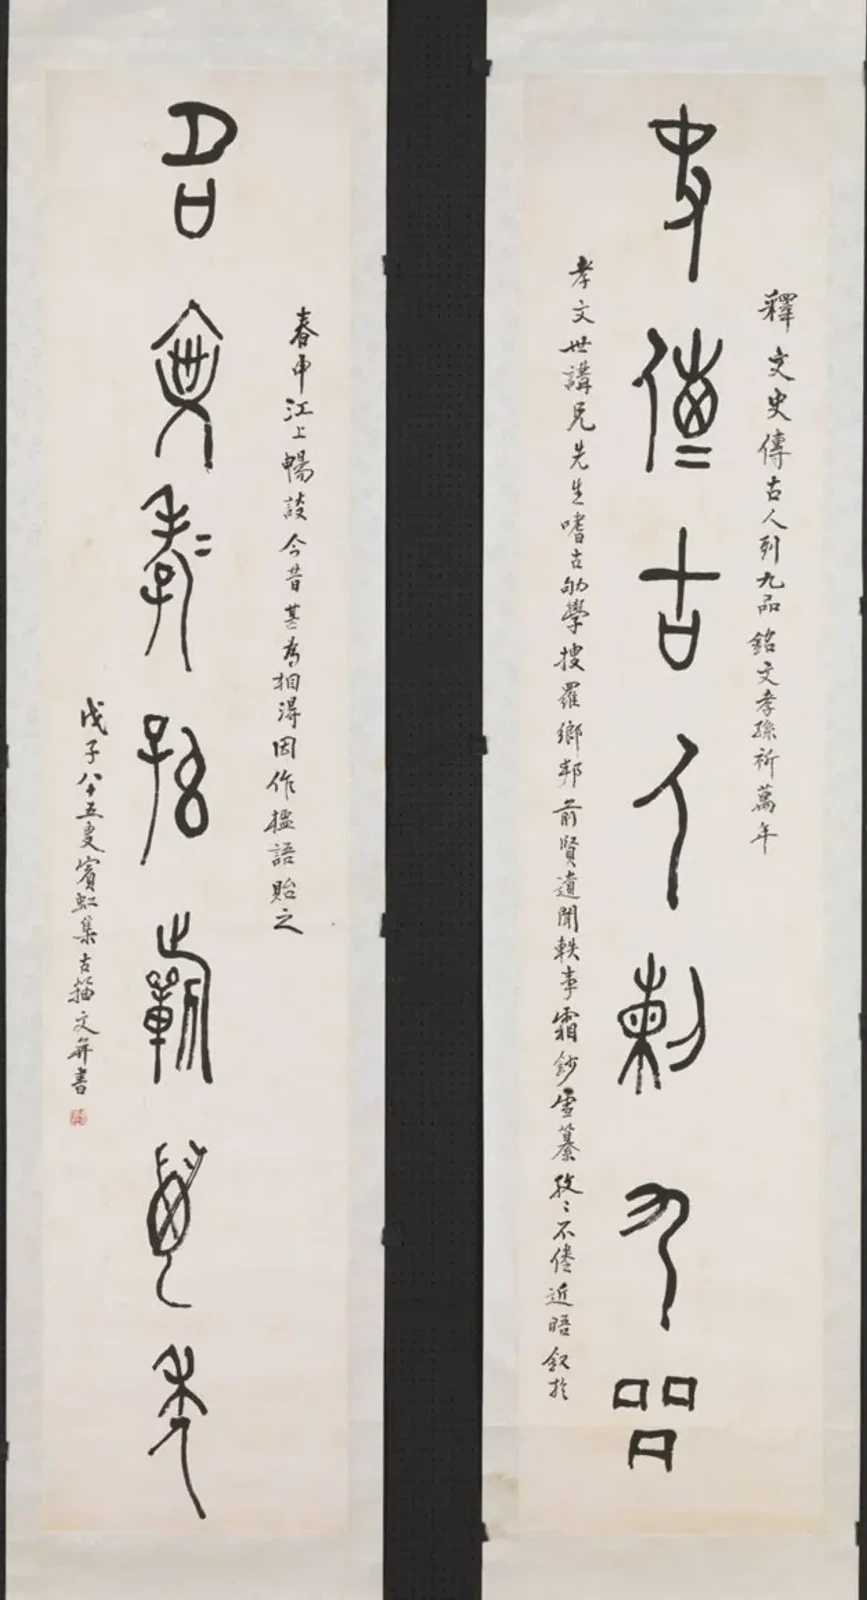 釋文史傳古人列九品銘文孝孫祈萬年
史傳古人列九品
孝文世講兄先生嗜古劬學搜羅鄉邦前賢遺聞軼事霜鈔雪纂孜〻不倦近晤敘於
春申江上暢談今昔甚為相得因作楹語貽之
銘文孝孫祈萬年
戊子八十五叟賓虹集古籀文并書